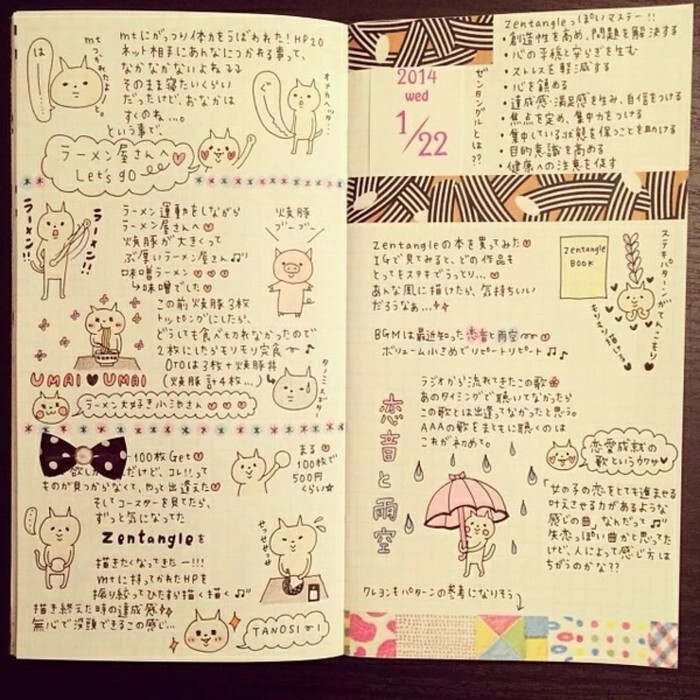 mtにがっつり体力をうばわれた！HP20
ネット相手にあんなにつかれる事って、
なかなかないよねぇる
そのまま寝たいくらい
だったけど、おなかは
すくのね…。
という事で、
は
mt
つ、つかれたよ…
ぐ
オナカヘッタ…
ラーメン屋さんへ
Let's go
ラーメン!!
ラーメン!!
ラーメン運動をしながら
ラーメン屋さんへ
焼豚が大きくって
ぶ厚いラーメン屋さん
味噌ラーメン
→味噌でした
この前焼豚3枚
トッピングにしたら、
どうしても食べ切れなかったので
2枚にしたらモリモリ完食
OTOは3枚+焼豚丼
(焼豚計4枚…)
焼豚
ブーブー
UMAI UMAI
ラーメン大好き小池さん
100枚Get
だけど、コレ!!って
ものが見つからなくて、やっと出逢えた
そしコースターを見てたら、
ずっと気になってた
Zentangleを
描きたくなってきたー!!!
mtに持ってかれたHPを
振り絞ってひたすら描く描く
描き終えた時の達成感
無心で没頭できるこの感じ…
まる
100枚で
500円
くらい
せっせっせっ
TANOSIーI
2014
wed
1/22
ゼンタングルとは??
Zentangleっぽいマステー!!
・創造性を高め、問題を解決する
・心の平穏と安らぎを生む
・ストレスを軽減する
・心を鎮める
・達成感・満足感を生み、自信をつける
・焦点を定め、集中力をつける
・集中している状態を保つことを助ける
・目的意識を高める
・健康への注意を促す
Zentangleの本を買ってみた
IGで見てみると、どの作品も
とってもステキでうっとり…
あんな風に描けたら、気持ちいい
だろうなぁ…
Zentangle
BOOK
ステキパターンがてんこもり
BGMは最近知った恋音と雨空
ボリューム小さめでリピートリピート
恋音と雨空
ラジオから流れてきたこの歌
あのタイミングで聴いてなかったら
この歌とは出逢ってなかったと思う。
AAAの歌をまともに聴くのは
これが初めて。
恋愛成就の
歌というウワサ
「女の子の恋をとても進ませる
叶えさせる力があるような
感じの曲」なんだって
失恋っぽい曲かと思ってた
けど、人によって感じ方は
ちがうのかな??
クレヨンもパターンの参考になりそう